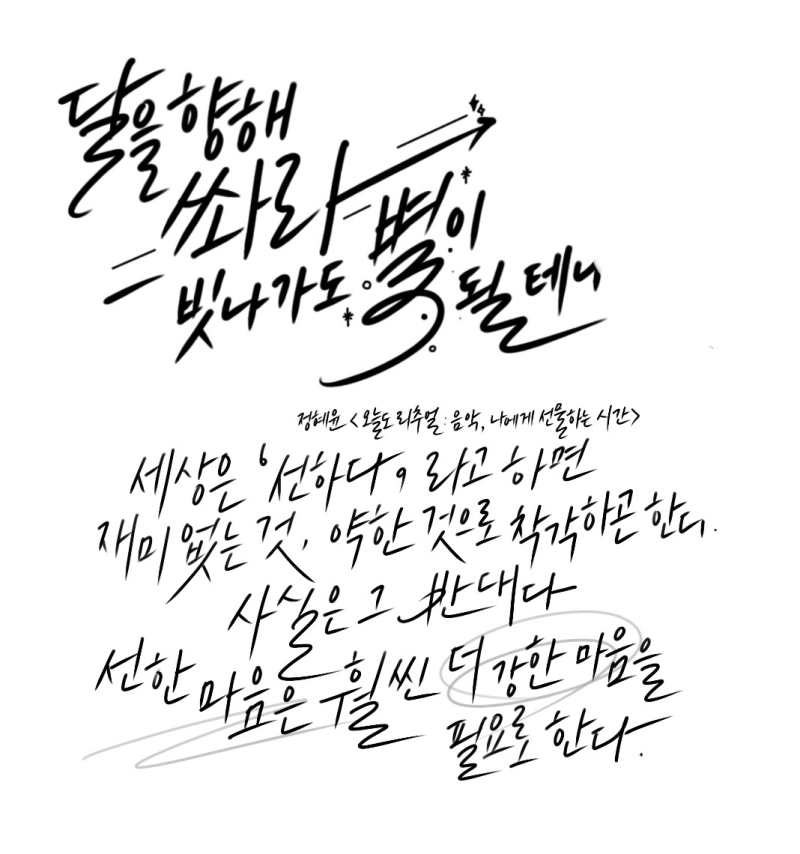 달을 향해
쏴라 별이
빗나가도 될 테니
정혜윤 <오늘도 리추얼 : 음악, 나에게 선물하는 시간>
세상은 '선하다, 라고 하면
재미없는 것, 약한 것으로 착각하곤 한다.
사실은 그 반대다
선한 마음은 훨씬 더 강한 마음을
필요로 한다.